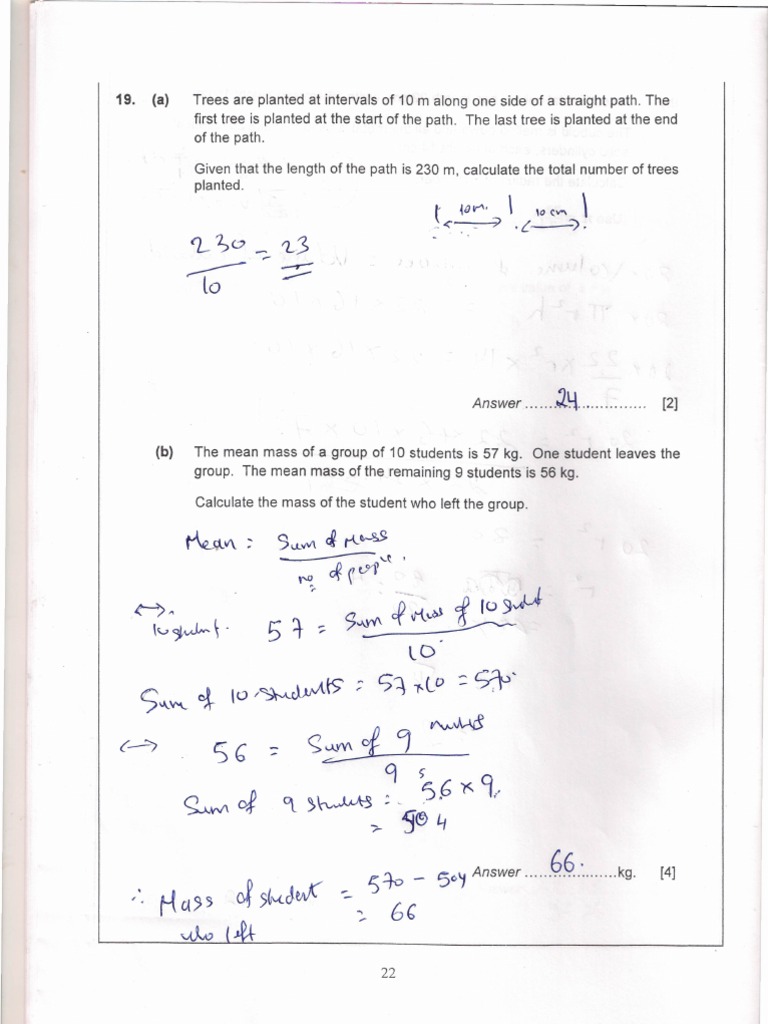 19. (a) Trees are planted at intervals of 10 m along one side of a straight path. The
first tree is planted at the start of the path. The last tree is planted at the end
of the path.
Given that the length of the path is 230 m, calculate the total number of trees
planted.
10m. 10 cm
230/10 = 23
Answer ........24................ [2]
(b) The mean mass of a group of 10 students is 57 kg. One student leaves the
group. The mean mass of the remaining 9 students is 56 kg.
Calculate the mass of the student who left the group.
Mean = Sum of Mass / no of people.
10 student. 57 = Sum of Mass of 10 student / 10
Sum of 10 students = 57 × 10 = 570.
↔ 56 = Sum of 9 / 9
Sum of 9 students = 56 × 9
= 504
Answer ......66.............kg. [4]
∴ Mass of student = 570 - 504
who left = 66
22